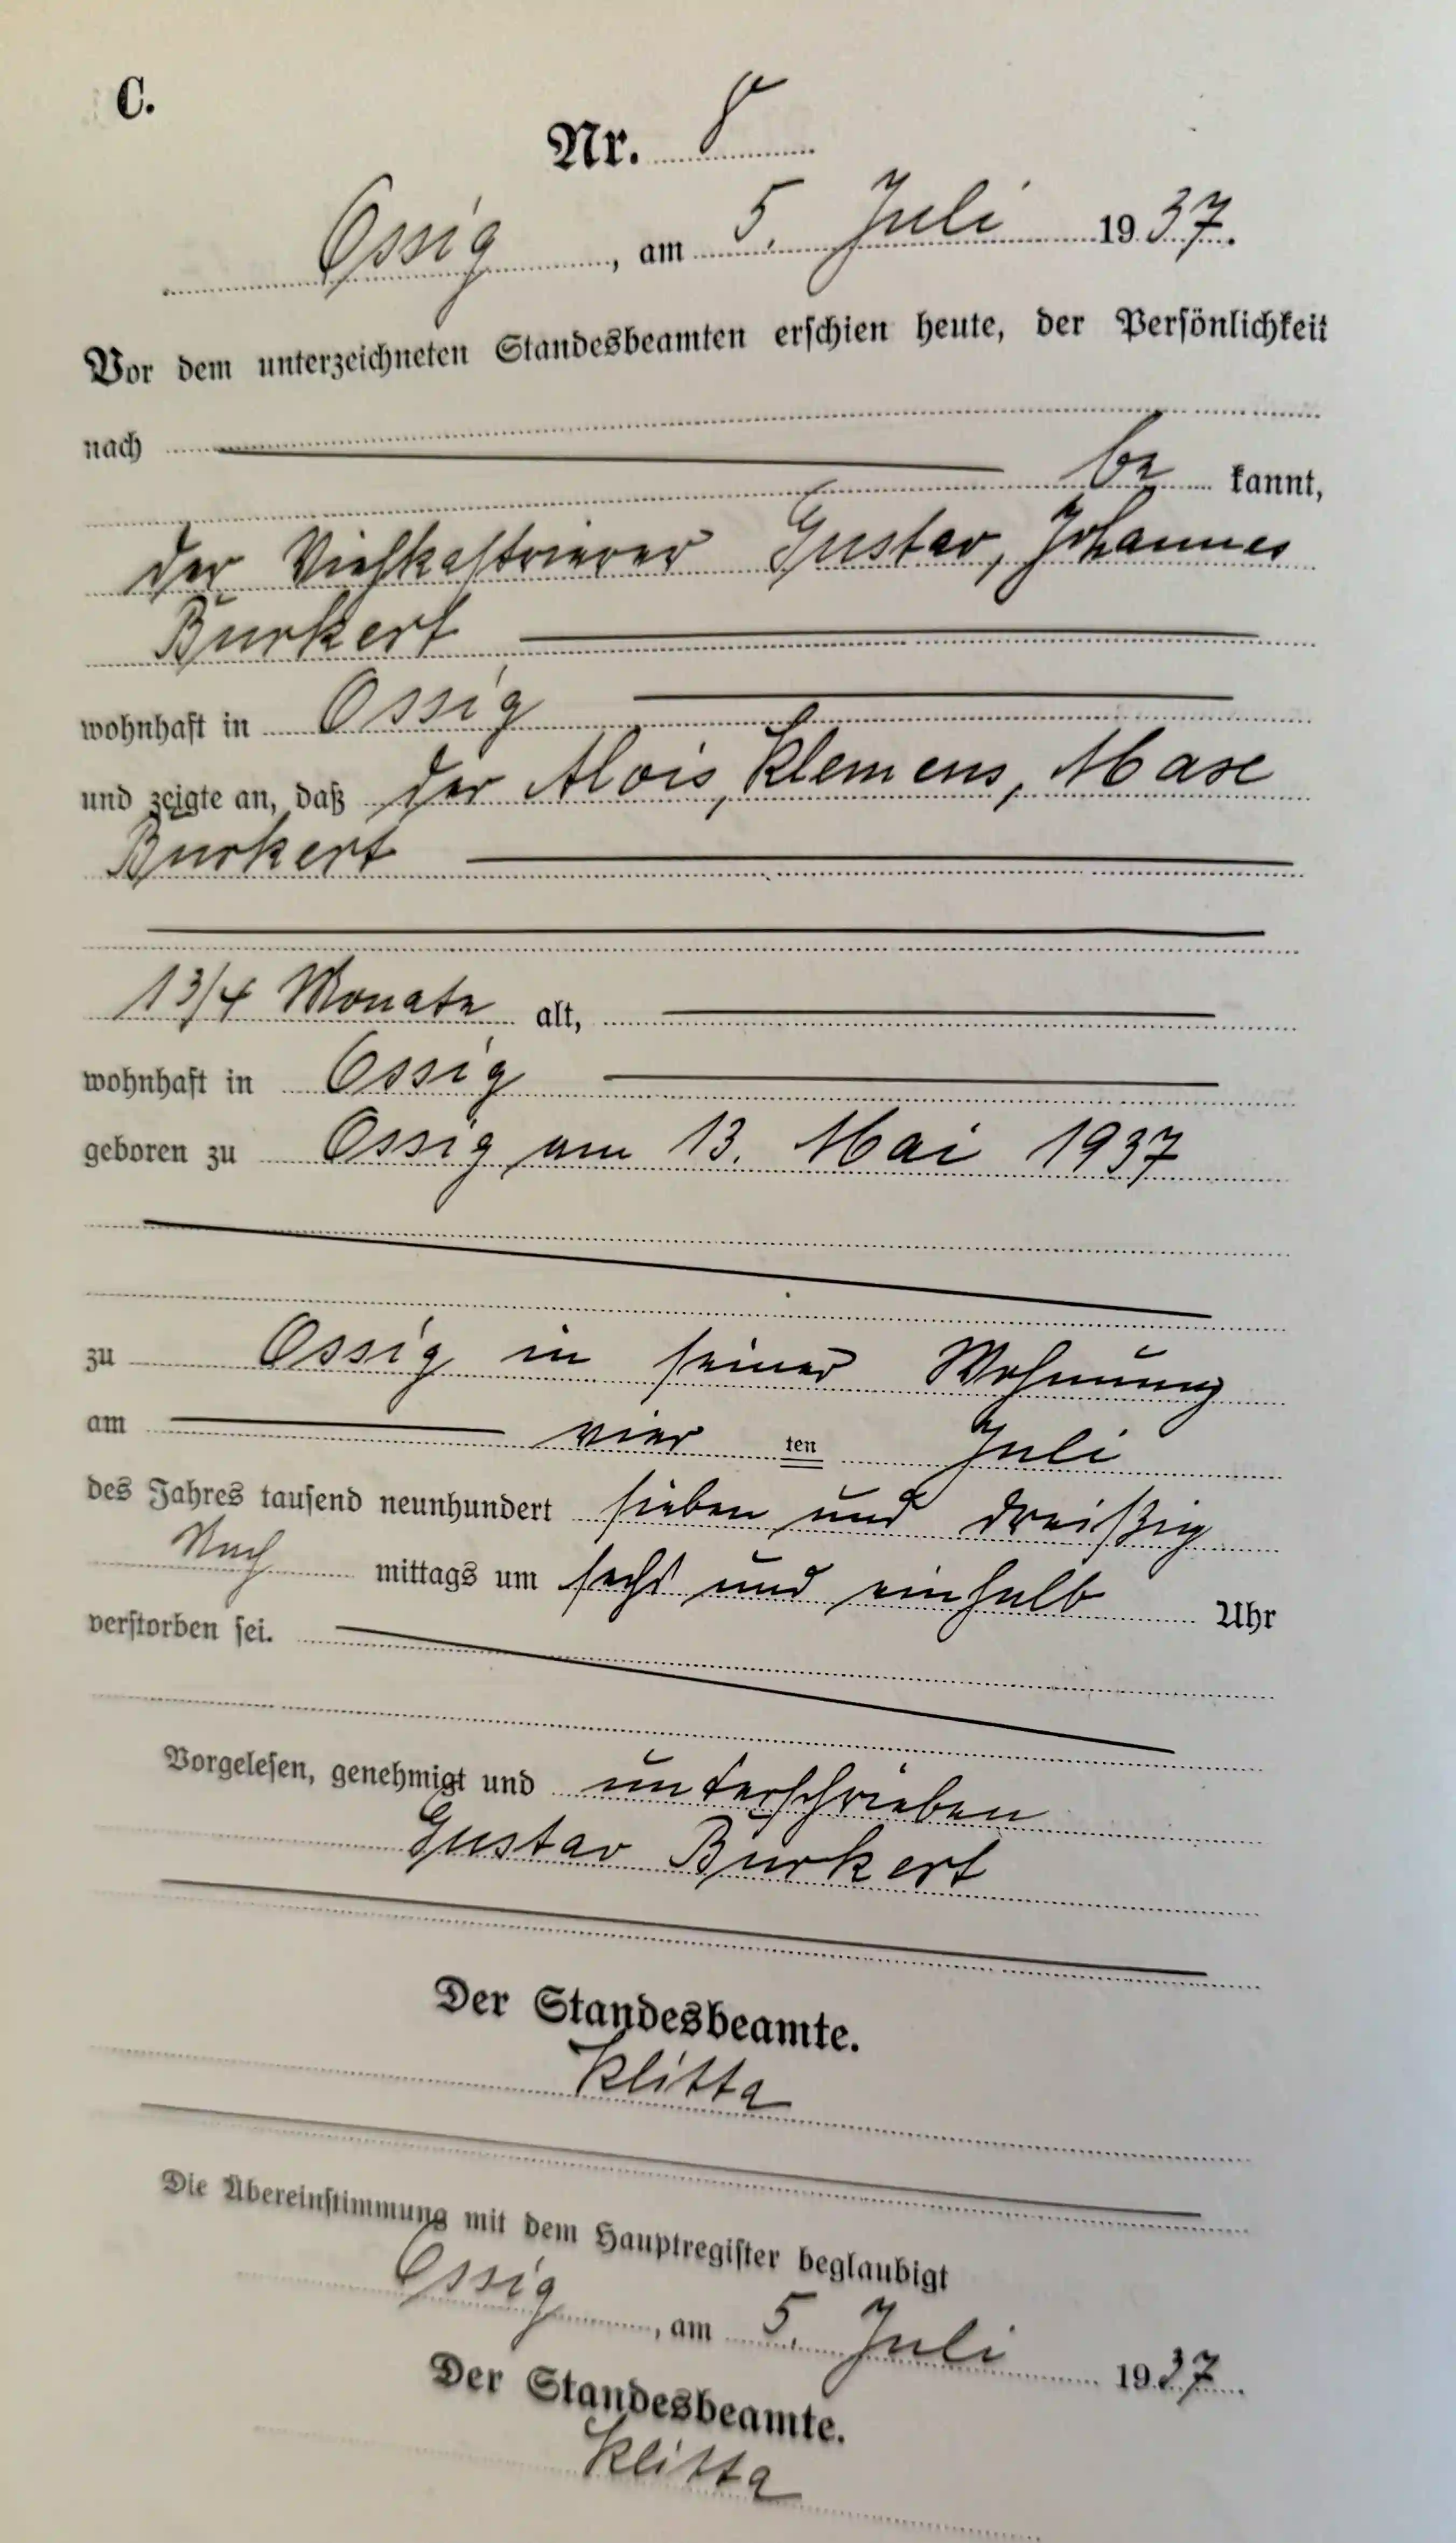 C.
Nr. 8
Ossig, am 5. Juli 1937.
Vor dem unterzeichneten Standesbeamten erschien heute, der Persönlichkeit
nach
be kannt,
der Viehkastrierer Gustav, Johannes
Burkert
wohnhaft in Ossig
und zeigte an, daß der Alois, Klemens, Maxe
Burkert
1 3/4 Monate alt,
wohnhaft in Ossig
geboren zu Ossig am 13. Mai 1937
zu Ossig in seiner Wohnung
am vier ten Juli
des Jahres tausend neunhundert sieben und dreißig
Nach mittags um sechs und einhalb Uhr
verstorben sei.
Vorgelesen, genehmigt und unterschrieben
Gustav Burkert
Der Standesbeamte.
Klitta
Die Übereinstimmung mit dem Hauptregister beglaubigt
Ossig, am 5. Juli 1937.
Der Standesbeamte.
Klitta